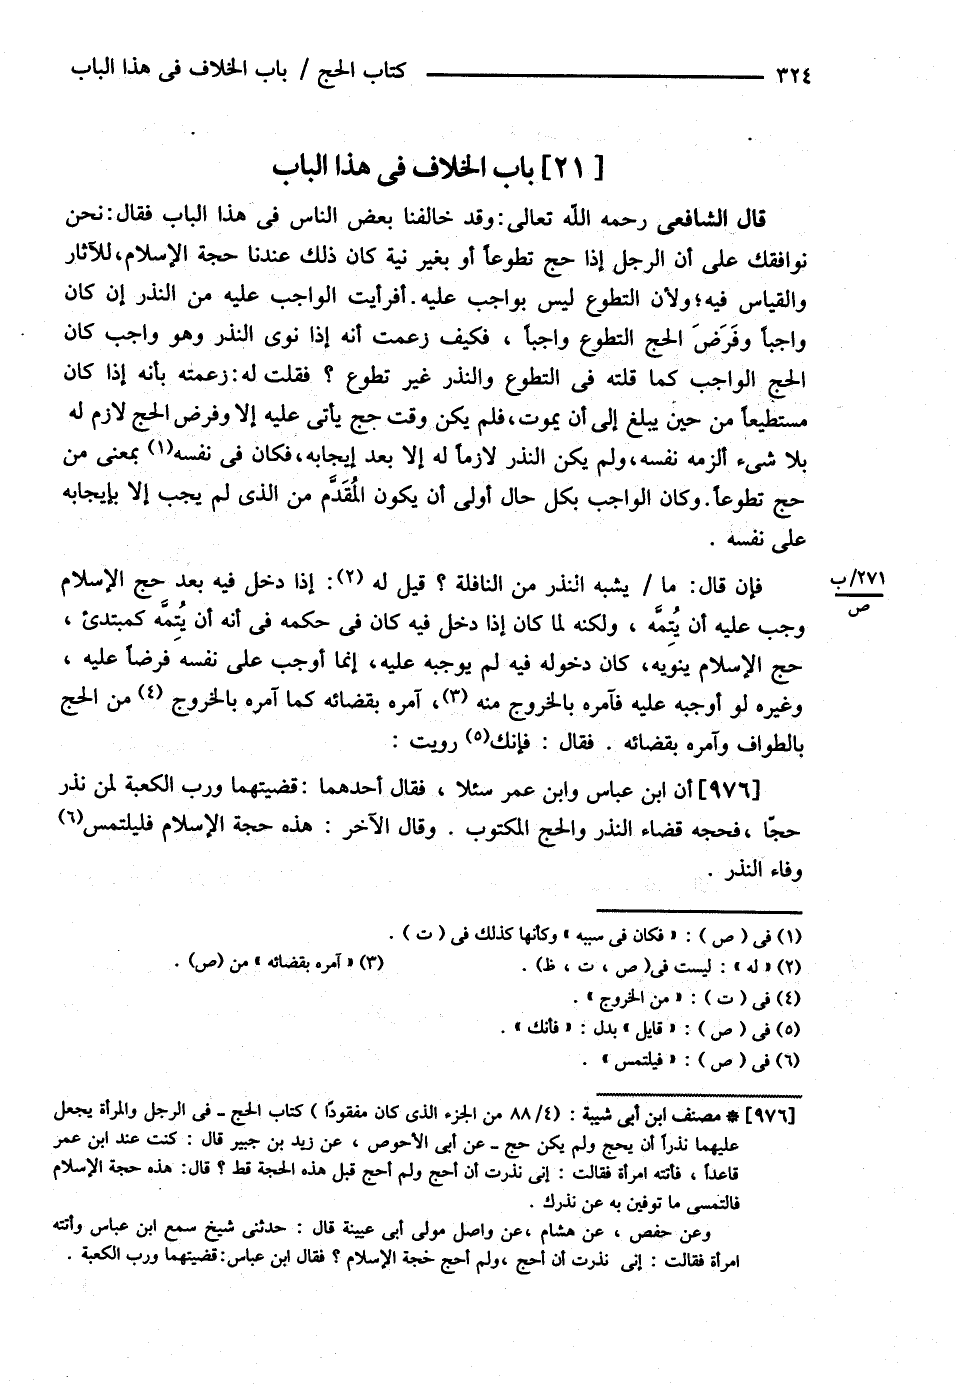 ٣٢٤ كتاب الحج / باب الخلاف فى هذا الباب
[ ٢١] باب الخلاف فى هذا الباب
قال الشافعى رحمه الله تعالى : وقد خالفنا بعض الناس فى هذا الباب فقال : نحن
نوافقك على أن الرجل إذا حج تطوعاً أو بغير نية كان ذلك عندنا حجة الإسلام، للآثار
والقياس فيه؛ ولأن التطوع ليس بواجب عليه. أفرأيت الواجب عليه من النذر إن كان
واجباً وفَرَضَ الحج التطوع واجباً ، فكيف زعمت أنه إذا نوى النذر وهو واجب كان
الحج الواجب كما قلته فى التطوع والنذر غير تطوع ؟ فقلت له : زعمته بأنه إذا كان
مستطيعاً من حين يبلغ إلى أن يموت، فلم يكن وقت حج يأتى عليه إلا وفرض الحج لازم له
بلا شىء ألزمه نفسه، ولم يكن النذر لازماً له إلا بعد إيجابه، فكان فى نفسه(١) بمعنى من
حج تطوعاً. وكان الواجب بكل حال أولى أن يكون المُقَدَّم من الذى لم يجب إلا بإيجابه
على نفسه .
فإن قال: ما / يشبه النذر من النافلة ؟ قيل له (٢): إذا دخل فيه بعد حج الإسلام
٢٧١/ب
ص
وجب عليه أن يُتِمَّه ، ولكنه لما كان إذا دخل فيه كان فى حكمه فى أنه أن يُتِمَّه كمبتدئ ،
حج الإسلام ينويه، كان دخوله فيه لم يوجبه عليه، إنما أوجب على نفسه فرضاً عليه ،
وغيره لو أوجبه عليه فآمره بالخروج منه (٣)، آمره بقضائه كما آمره بالخروج (٤) من الحج
بالطواف وآمره بقضائه . فقال : فإنك(٥) رويت :
[٩٧٦] أن ابن عباس وابن عمر سئلا ، فقال أحدهما : قضيتهما ورب الكعبة لمن نذر
حجّا ، فحجه قضاء النذر والحج المكتوب . وقال الآخر : هذه حجة الإسلام فليلتمس(٦)
وفاء النذر .
(١) فى ( ص ) : « فكان فى سببه » وكأنها كذلك فى ( ت ) .
(٢) « له » : ليست فى( ص ، ت ، ظ) . (٣) « آمره بقضائه » من (ص) .
(٤) فى ( ت ) : « من الخروج » .
(٥) فى ( ص ) : « قايل » بدل : « فأنك » .
(٦) فى ( ص ) : « فيلتمس » .
[٩٧٦] * مصنف ابن أبى شيبة : (٨٨/٤ من الجزء الذى كان مفقودًا ) كتاب الحج ـ فى الرجل والمرأة يجعل
عليهما نذراً أن يحج ولم يكن حج ـ عن أبى الأحوص ، عن زيد بن جبير قال : كنت عند ابن عمر
قاعداً ، فأتته امرأة فقالت : إنى نذرت أن أحج ولم أحج قبل هذه الحجة قط ؟ قال: هذه حجة الإسلام
فالتمسى ما توفين به عن نذرك .
وعن حفص ، عن هشام ، عن واصل مولى أبى عيينة قال : حدثنى شيخ سمع ابن عباس وأتته
امرأة فقالت : إنى نذرت أن أحج ، ولم أحج حجة الإسلام ؟ فقال ابن عباس: قضيتهما ورب الكعبة .